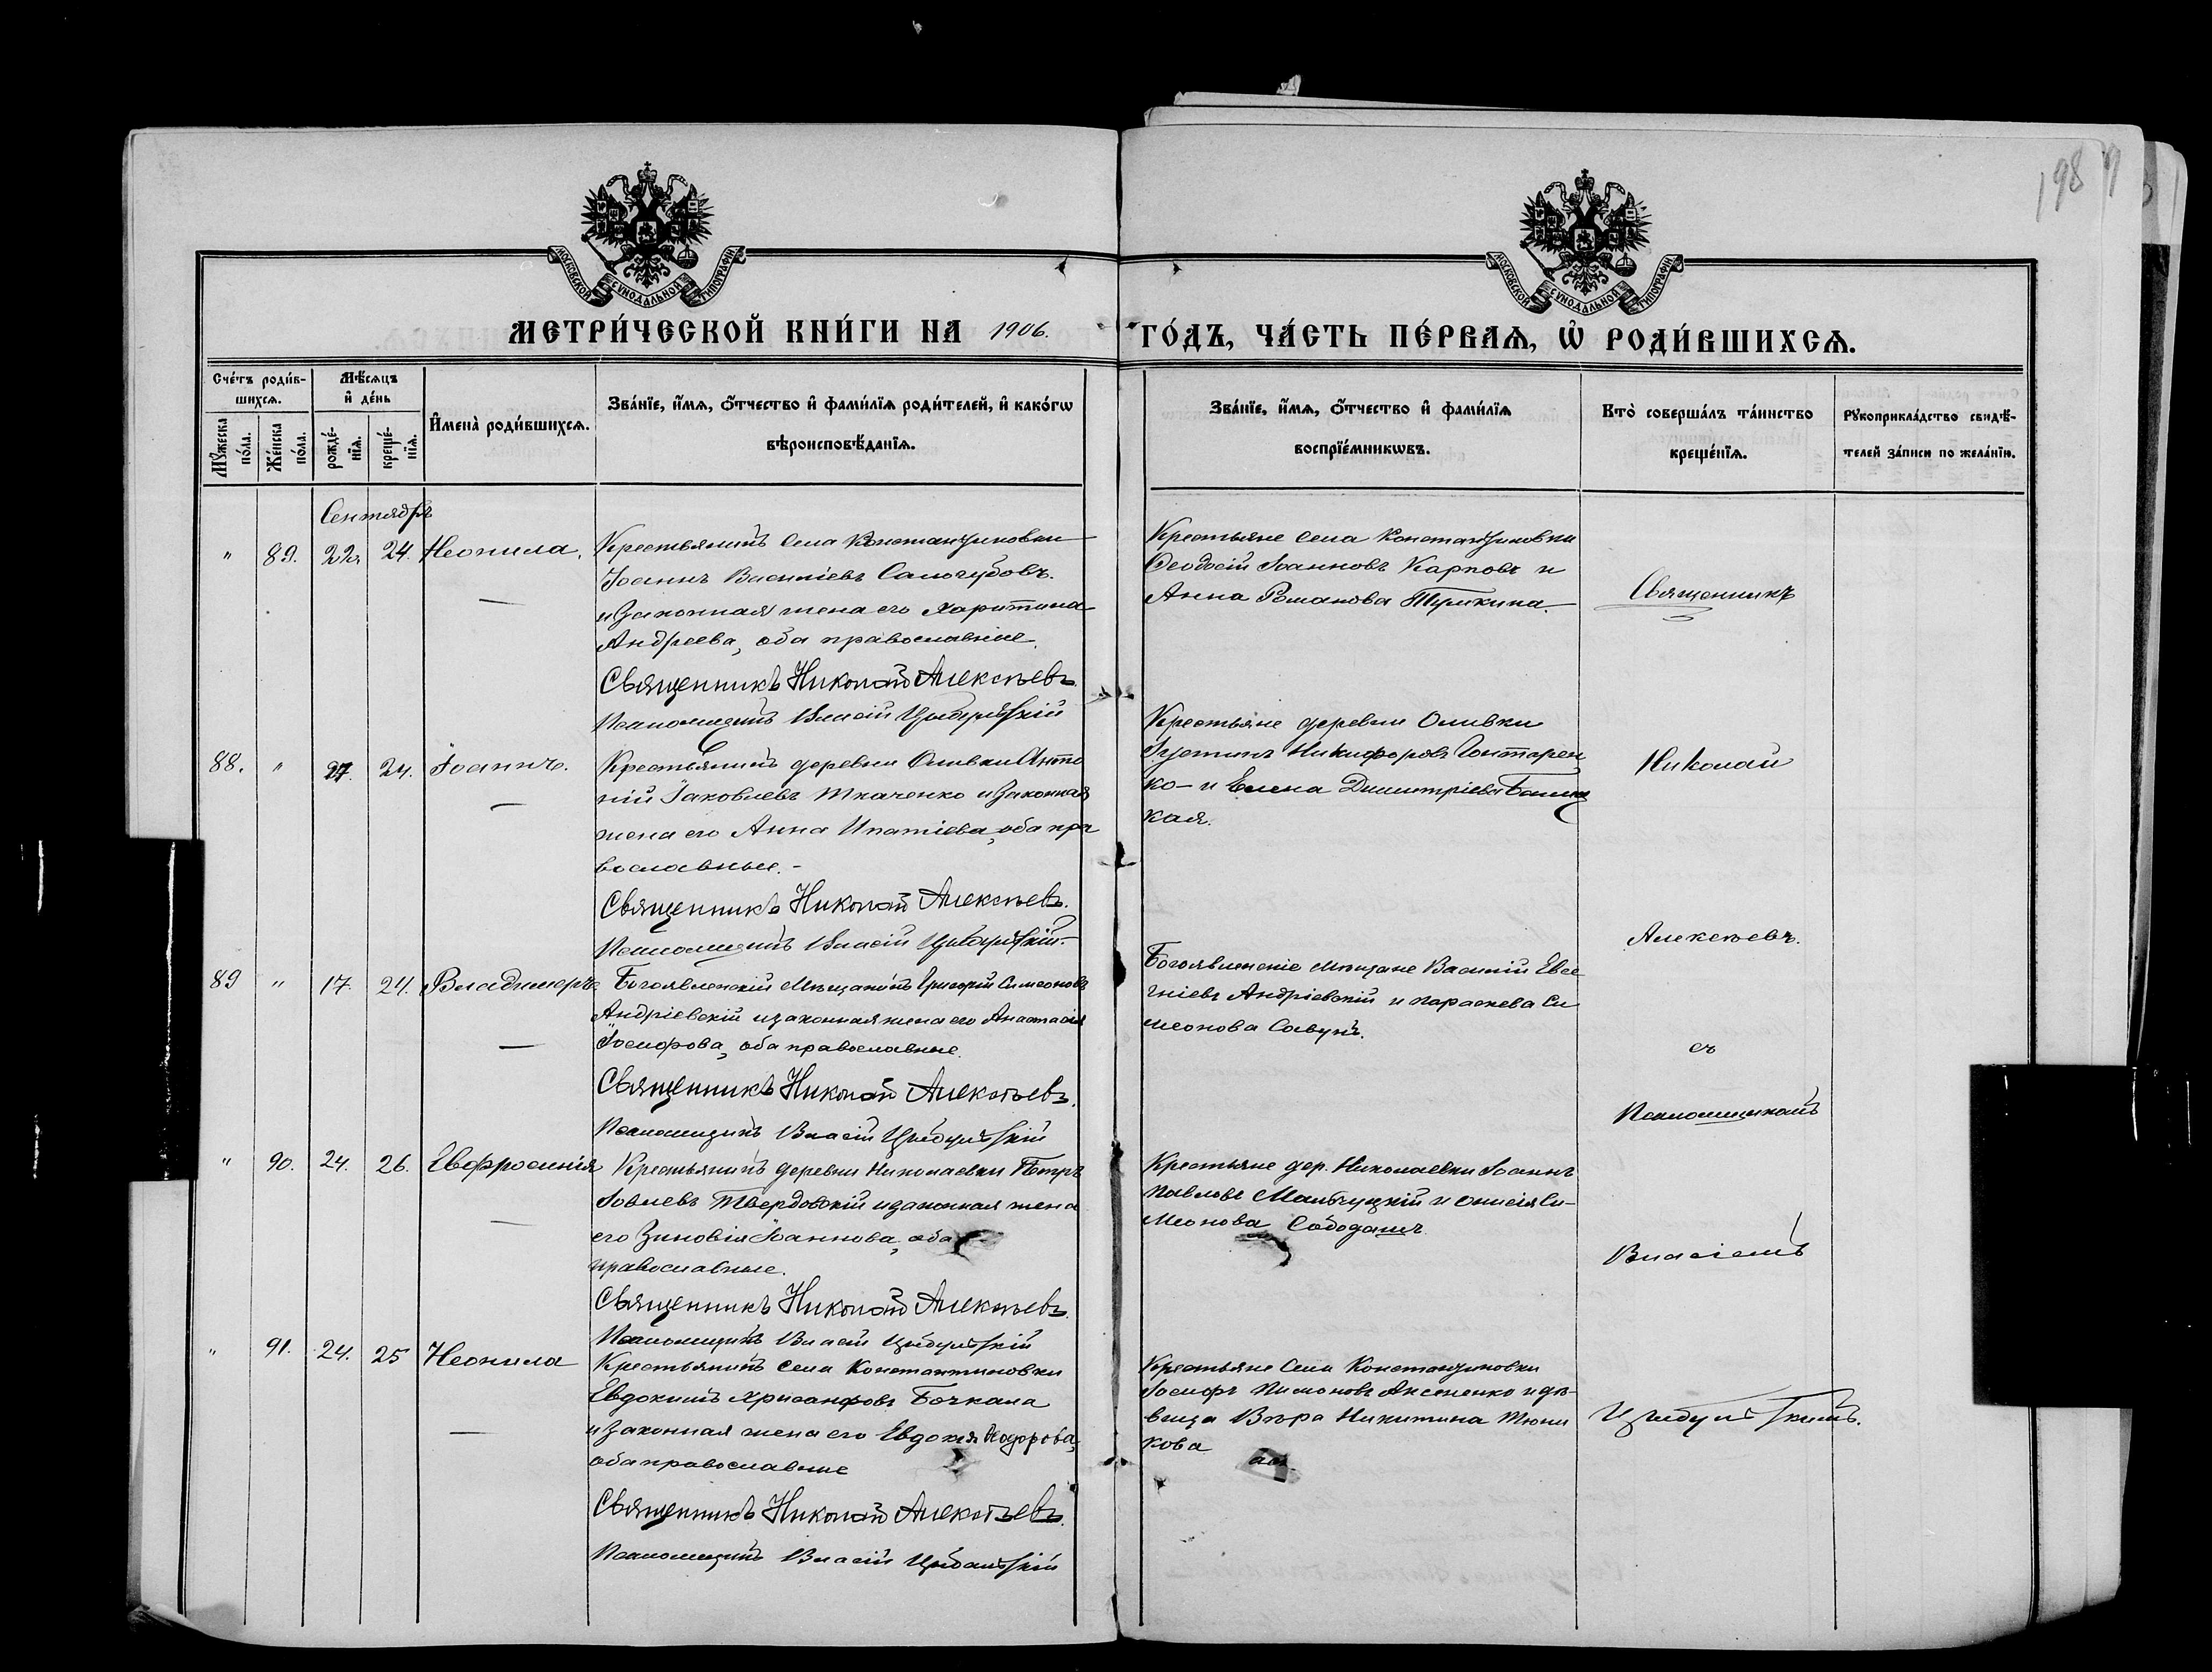 198
МОСКОВСКОЙ СѴНОДАЛЬНОЙ ТИПОГРАФІИ
МОСКОВСКОЙ СѴНОДАЛЬНОЙ ТИПОГРАФІИ
МЕТРИ́ЧЕСКОЙ КНИ́ГИ НА 1906. ГО́ДЪ, ЧА́СТЬ ПЕ́РВАѦ, Ѡ҆ РОДИ́ВШИХСѦ.
Сче́тъ роди́в-
шихсѧ.
Мꙋ́жеска по́ла.
Же́нска по́ла.
Мѣ́сѧцъ
и҆ де́нь
рожде́-
нїѧ.
креще́-
нїѧ.
И҆мена̀ роди́вшихсѧ.
Зва́нїе, и҆́мѧ, ѻ҆́тчество и҆ фами́лїѧ роди́телей, и҆ како́гѡ
вѣроисповѣ́данїѧ.
Зва́нїе, и҆́мѧ, ѻ҆́тчество и҆ фами́лїѧ
воспрїе́мникѡвъ.
Кто̀ соверша́лъ та́инство
креще́нїѧ.
Рꙋкоприкла́дство свидѣ́-
телей за́писи по жела́нїю.
Сентябрь
" 89. 22. 24. Неонила.
Крестьянинъ села Константиновки
Іоаннъ Василіевъ Самогубовъ.
и законная жена его Харитина
Андреева, оба православные.
Священникъ Николай Алексѣевъ.
Псаломщикъ Власій Цыбульскій
Крестьяне села Константиновки
Ѳеодосій Іоанновъ Карповъ и
Анна Романова Тумкина.
Священникъ
88. " 24. Іоаннъ.
Крестьянинъ деревни Оливки Анто
ній Іаковлевъ Ткаченко и законная
жена его Анна Ипатіева, оба пра
вославные.-
Священникъ Николай Алексѣевъ.
Псаломщикъ Власій Цыбульскій.
Крестьяне деревни Оливки
Іустинъ Никифоровъ Гонтарен
ко - и Елена Димитріева
кая.
Николай
Алексѣевъ.
89 " 17. 24. Владимиръ
Богоявленскій мѣщанинъ Григорій Симеоновъ
Андріевскій и законная жена его Анастасія
Іосифова, оба православные.
Священникъ Николай Алексѣевъ.
Псаломщикъ Власій Цыбульскій
Богоявленскіе мѣщане Василій Евге
ніевъ Андріевскій и Параскева Си
меонова Савунъ.
съ
Псаломщикомъ
" 90. 24. 26. Евфросинія
Крестьянинъ деревни Николаевки Петръ
Іовлевъ Твердовскій и законная жена
его Зиновія Іоаннова, оба
православные.
Священникъ Николай Алексѣевъ.
Псаломщикъ Власій Цыбульскій
Крестьяне дер. Николаевки Іоаннъ
Павловъ и Онисія Си-
меонова
Власіемъ
" 91. 24. 25 Неонила
Крестьянинъ села Константиновки
Евдокимъ Хрисанфовъ Бочкала
и законная жена его Евдокія Ѳеодорова,
оба православные
Священникъ Николай Алексѣевъ.
Псаломщикъ Власій Цыбульскій
Крестьяне села Константиновки
Іосифъ Пимоновъ Аксененко и дѣ-
вица Вѣра Никитина Тюни
кова
Цыбульскимъ.